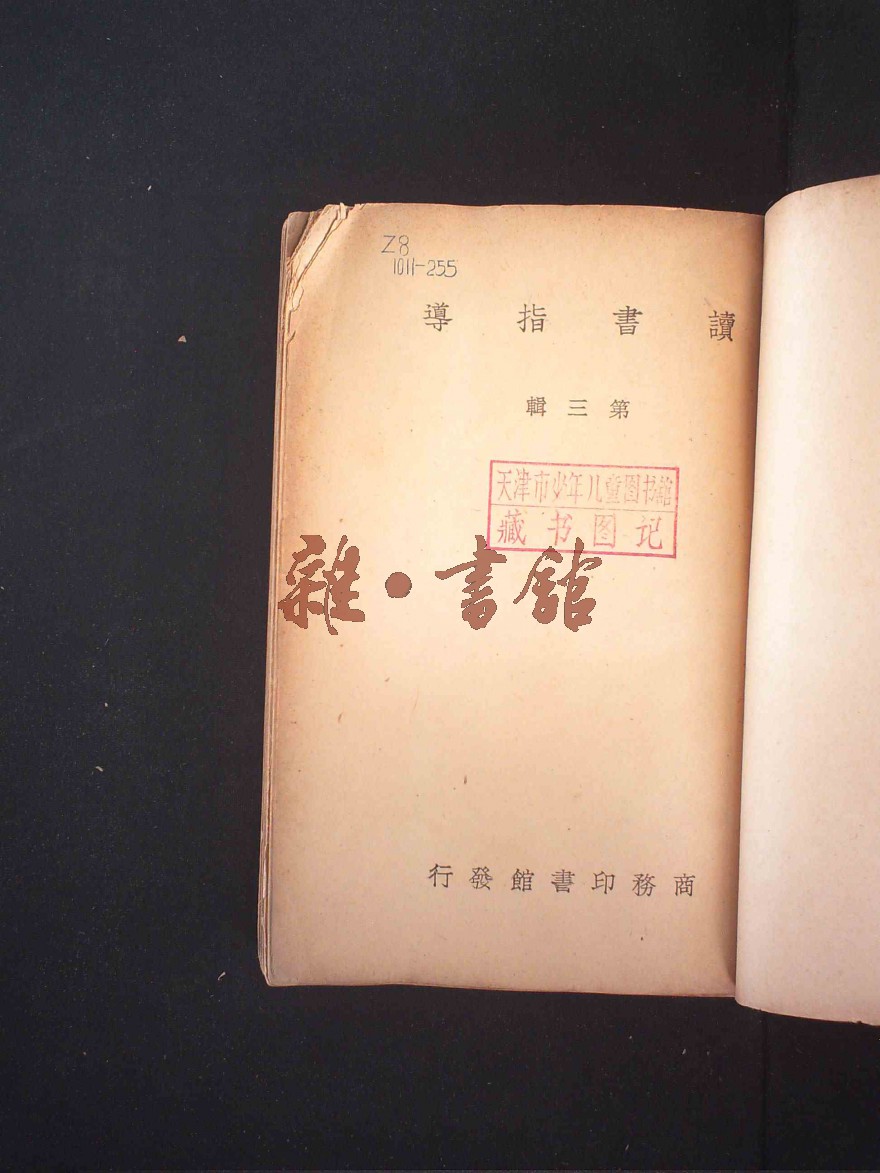 Z8
1011-255
讀書指導
第三輯
天津市少年儿童图书舘
藏书图记
雜·書館
商務印書館發行